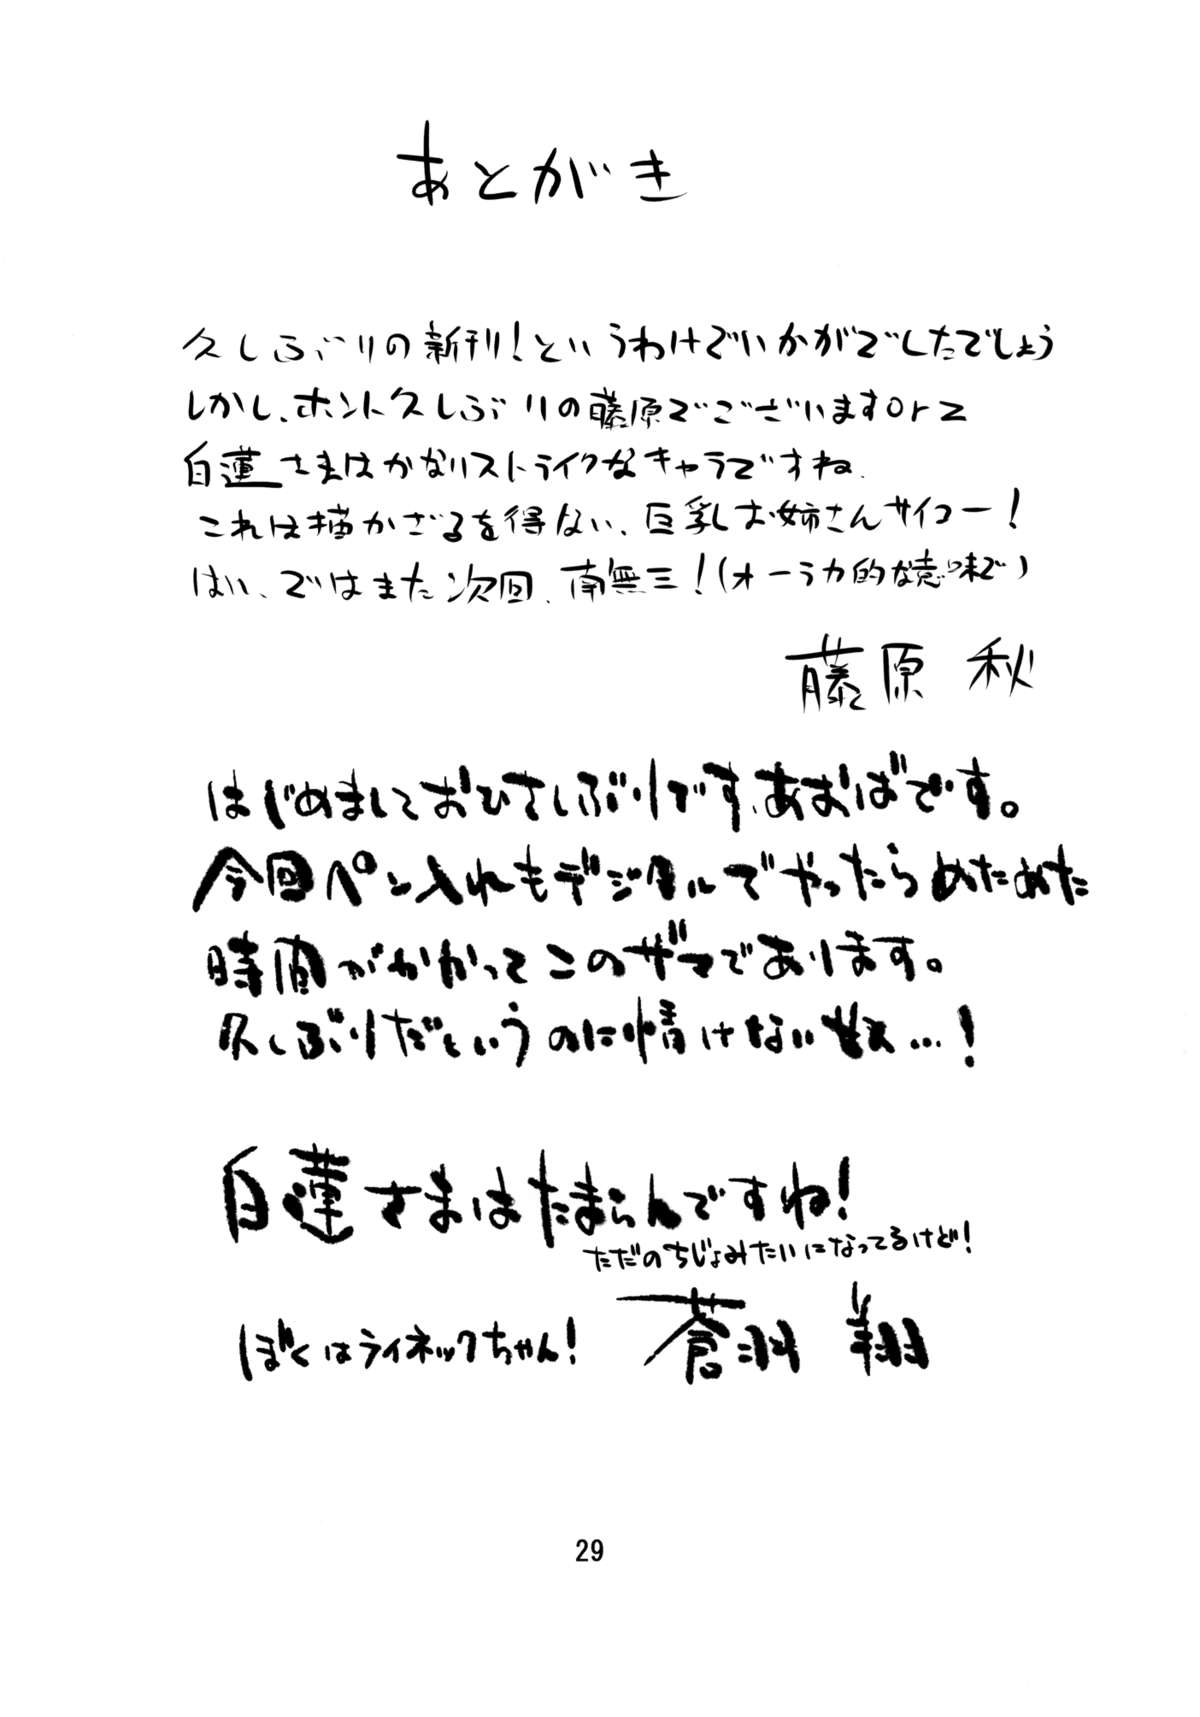 あとがき
久しぶりの新刊！というわけでいかがでしたでしょう
しかし、ホント久しぶりの藤原でございますorz
白蓮さまはかなりストライクなキャラですね。
これは描かざるを得ない、巨乳お姉さんサイコー！
はい、ではまた次回、南無三！(オーラ力的な意味で)
藤原 秋
はじめましておひさしぶりです、あおばです。
今回ペン入れもデジタルでやったらめためた
時間がかかってこのザマであります。
久しぶりだというのに情けない数…！
白蓮さまはたまらんですね！
ただのちじょみたいになってるけど！
ぼくはライネックちゃん！
蒼羽 翔
29